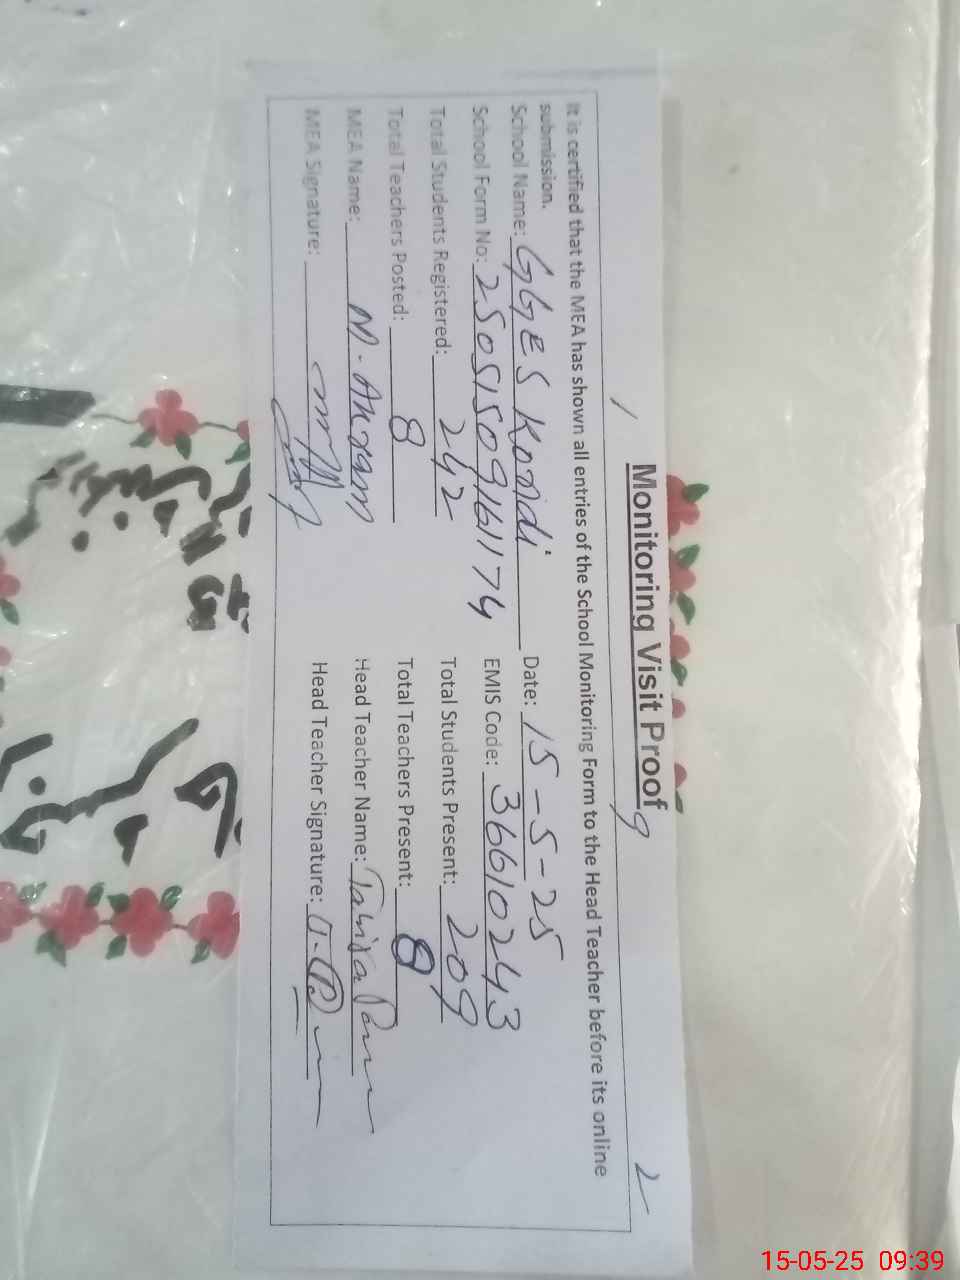 Monitoring Visit Proof
It is certified that the MEA has shown all entries of the School Monitoring Form to the Head Teacher before its online
submission.
School Name: GGES Kondi Date: 15-5-25
School Form No: 25051509161174 EMIS Code: 36610243
Total Students Registered: 242 Total Students Present: 209
Total Teachers Posted: 8 Total Teachers Present: 8
MEA Name: M. Akram Head Teacher Name: Tahira
MEA Signature: Head Teacher Signature:
15-05-25 09:39